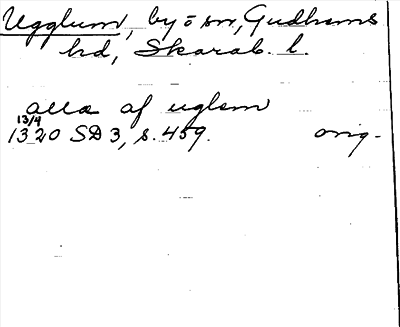 Ugglum, by o sn, Gudhems
hd, Skarab. l.
alla af uglem
13/4
1320 SD 3, s. 459. orig.